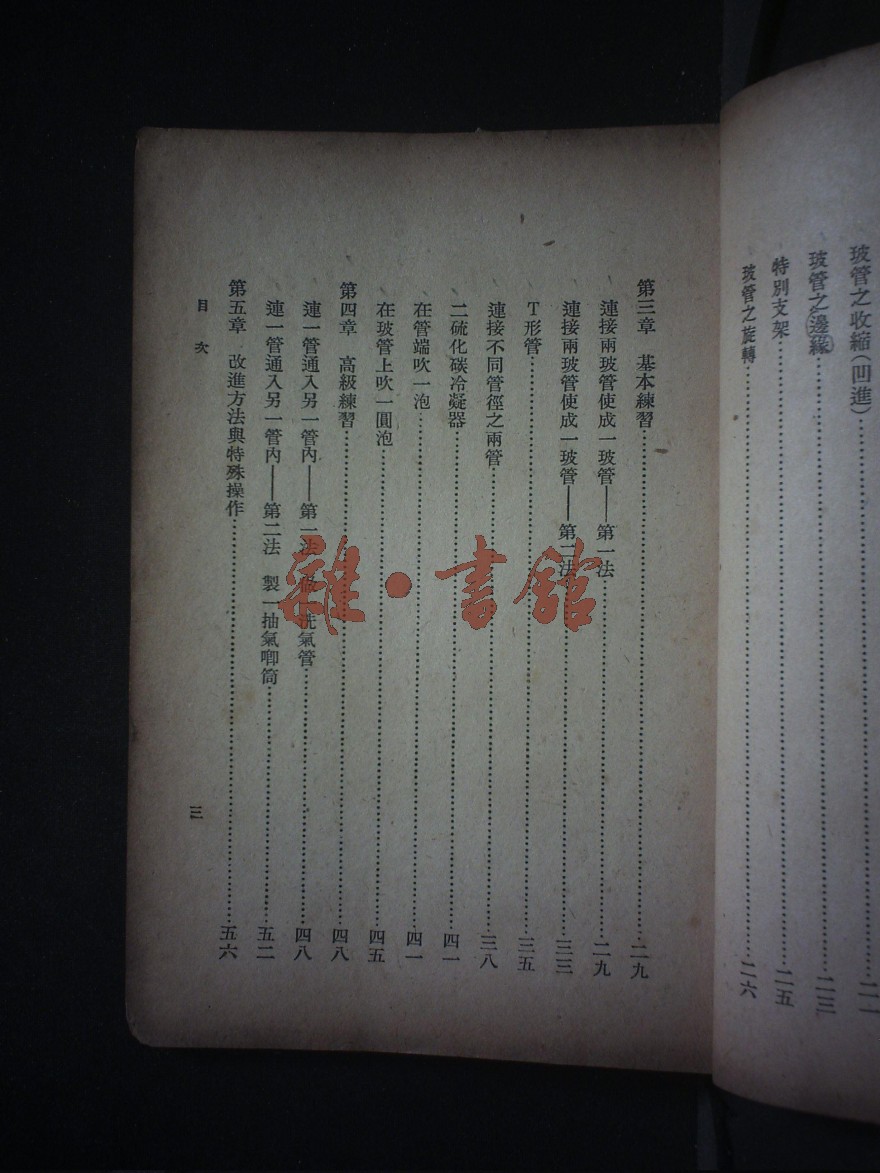 玻管之收縮(凹進)……二一
玻管之邊緣……二三
特別支架……二五
玻管之旋轉……二六
第三章　基本練習……二九
連接兩玻管使成一玻管——第一法……二九
連接兩玻管使成一玻管——第二法……三三
T形管……三五
連接不同管徑之兩管……三八
二硫化碳冷凝器……四一
在管端吹一泡……四一
在玻管上吹一圓泡……四五
第四章　高級練習……四八
連一管通入另一管內——第一法　洗氣管……四八
連一管通入另一管內——第二法　製一抽氣唧筒……五二
第五章　改進方法與特殊操作……五六
目次
三
雜·書館